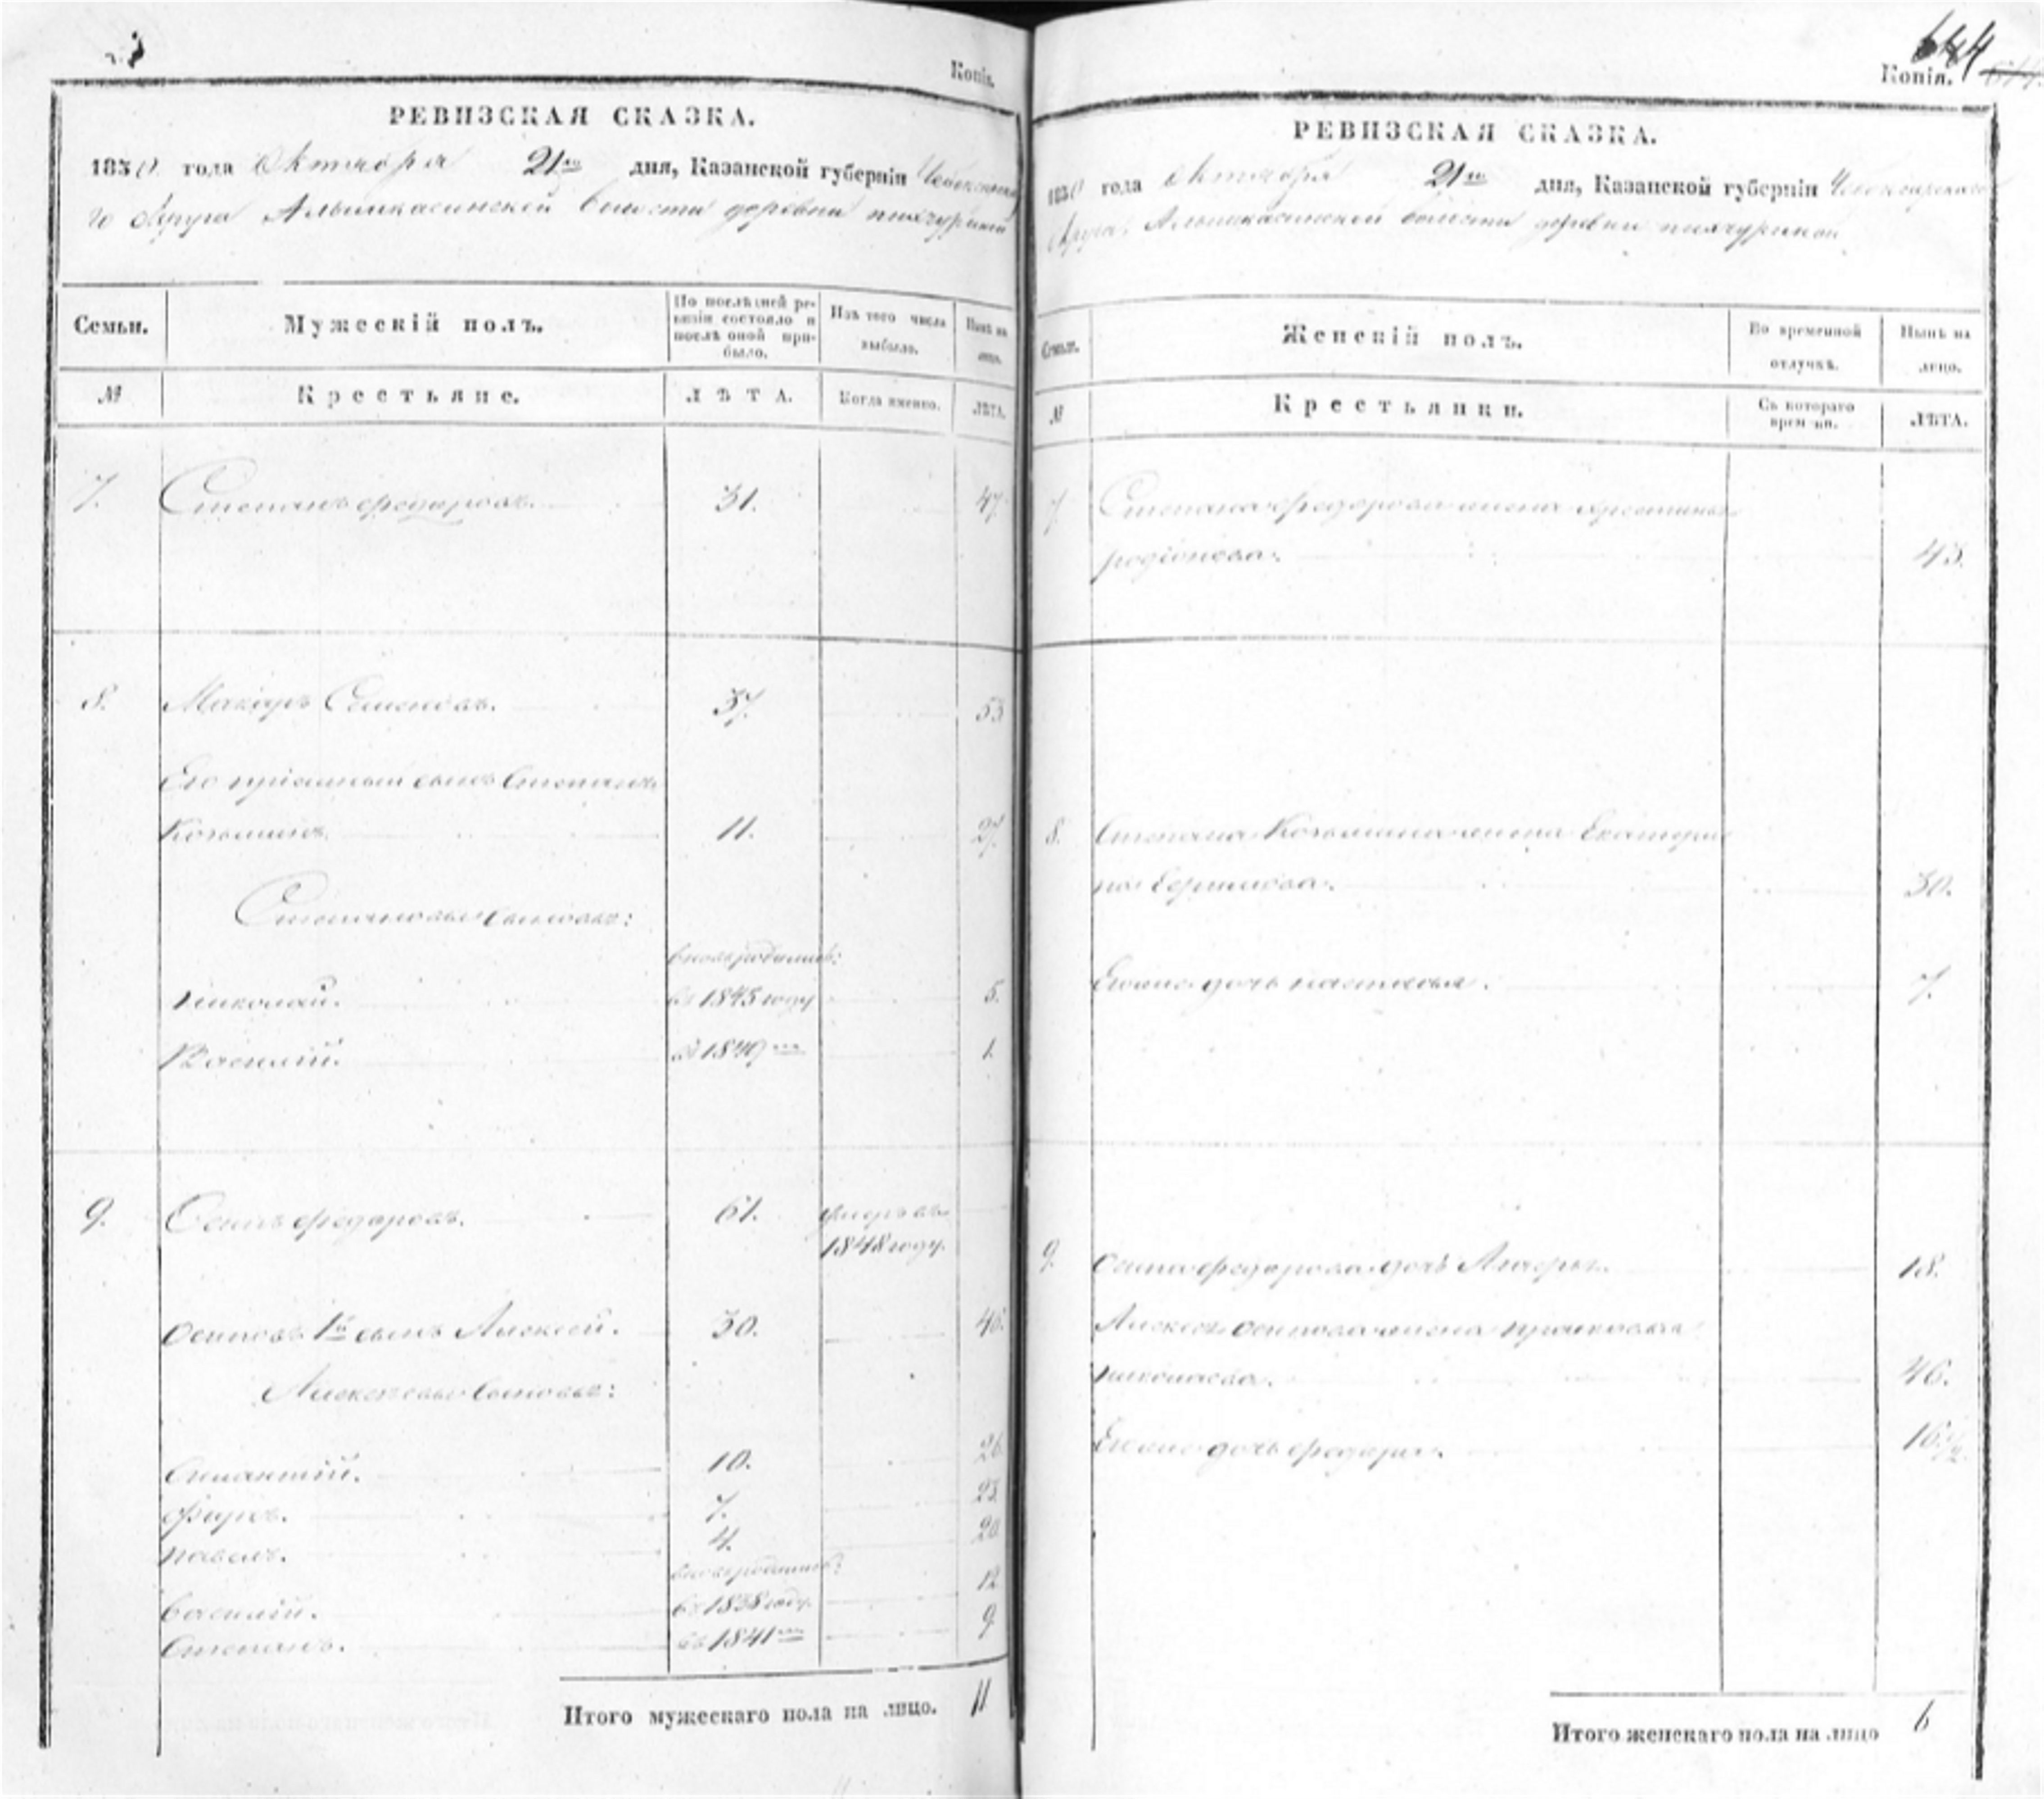 Копія.
РЕВИЗСКАЯ СКАЗКА.
1850 года Октября 21го дня, Казанской губерніи Чебоксарска
го Округа Альшикасинской волости деревни
Семьи.
Мужескій полъ.
По послѣдней ре-
визіи состояло и
послѣ оной при-
было.
Изъ того числа
выбыло.
Нынѣ на
лицо.
№
Крестьяне.
ЛѢТА.
Когда именно.
ЛѢТА.
7. Степанъ Федоровъ. 31. 47.
8. Макаръ Семеновъ. 37. 53
Его пріемный сынъ Степанъ
Козьминъ. 11. 27.
Степановы сыновья:
вновь родились:
Николай. въ 1845 году 5.
Василій. въ 1849м 1.
9. Осипъ Федоровъ. 61. умеръ въ
1848 году.
Осиповъ 1й сынъ Алексей. 30. 46.
Алексеевы сыновья:
10. 26.
7. 23.
Павелъ. 4. 20
вновь родились:
Василій. въ 1838 году. 12
Степанъ. въ 1841м 9
Итого мужескаго пола на лицо. 11
644
Копія.
РЕВИЗСКАЯ СКАЗКА.
1850 года Октября 21го дня, Казанской губерніи Чебоксарскаго
Округа Альшикасинской волости деревни
Семьи.
Женскій полъ.
Во временной
отлучкѣ.
Нынѣ на
лицо.
№
Крестьянки.
Съ котораго
времени.
ЛѢТА.
7. Степана Федорова жена
Родіонова. 43.
8. Степана Козьмина жена Екатери
на 30.
Ево дочь Настасья. 7.
9. Осипа Федорова дочь 18.
Алексея Осипова жена Прасковья
Николаева. 46.
дочь 16
Итого женскаго пола на лицо 6